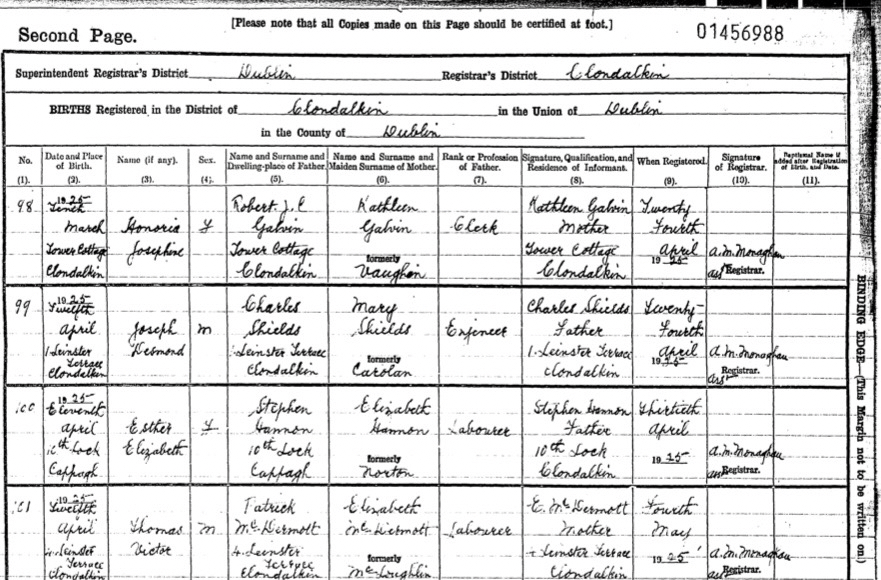 [Please note that all Copies made on this Page should be certified at foot.]
Second Page.
01456988
Superintendent Registrar's District Dublin Registrar's District Clondalkin
BIRTHS Registered in the District of Clondalkin in the Union of Dublin
in the County of Dublin
No. Date and Place of Birth. Name (if any). Sex. Name and Surname and Dwelling-place of Father. Name and Surname and Maiden Surname of Mother. Rank or Profession of Father. Signature, Qualification, and Residence of Informant. When Registered. Signature of Registrar. Baptismal Name if added after Registration of Birth, and Date.
(1). (2). (3). (4). (5). (6). (7). (8). (9). (10). (11).
1925
98 Tenth Robert J. C Kathleen Kathleen Galvin Twenty
March Honoria F Galvin Galvin Clerk Mother Fourth
Tower Cottage Josephine Tower Cottage formerly Tower Cottage April A.M. Monaghan
Clondalkin Clondalkin Vaughan Clondalkin 1925 asst Registrar.
1925
99 Twelfth Charles Mary Charles Shields Twenty-
April Joseph M Shields Shields Engineer Father Fourth
1. Leinster Desmond 1 Leinster Terrace formerly 1. Leinster Terrace April A.M. Monaghan
Terrace Clondalkin Clondalkin Carolan Clondalkin 1925 asst Registrar.
1925
100 Eleventh Stephen Elizabeth Stephen Hannon Thirtieth
April Esther F Hannon Hannon Labourer Father April
10th Lock Elizabeth 10th Lock formerly 10th Lock A.M. Monaghan
Cappagh Cappagh Norton Clondalkin 1925 asst Registrar.
1925
101 Twelfth Patrick Elizabeth E. McDermott Fourth
April Thomas M McDermott McDermott Labourer Mother May
4. Leinster Victor 4. Leinster formerly 4 Leinster Terrace 1925 A.M. Monaghan
Terrace Clondalkin Terrace Clondalkin McLoughlin Clondalkin asst Registrar.
BINDING EDGE—(This Margin not to be written on.)